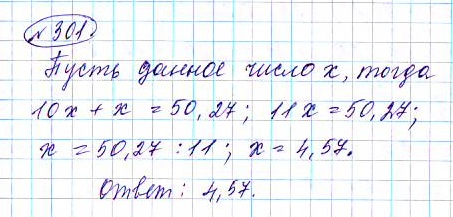 № 301.
Пусть данное число x, тогда
10x + x = 50,27; 11x = 50,27;
x = 50,27 : 11; x = 4,57.
Ответ: 4,57.